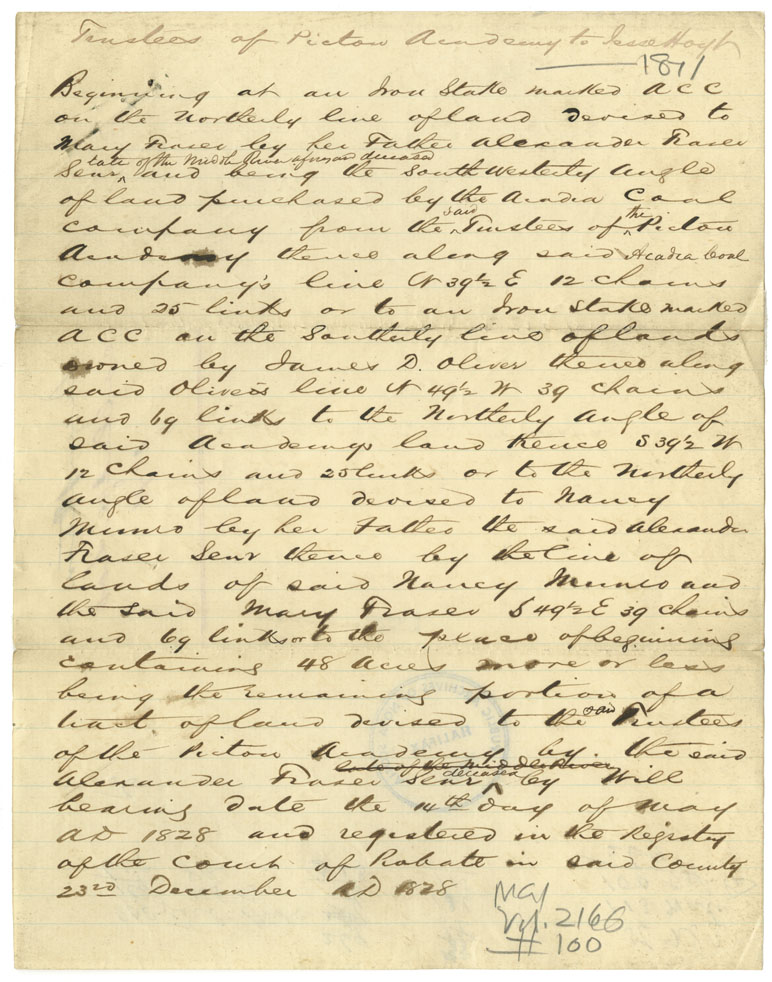 Trustees of Pictou Academy to Jesse Hoyt
1811
Beginning at an Iron Stake marked ACC
on the Northerly line of land devised to
Mary Fraser by her Father Alexander Fraser
late of the Middle River aforesaid deceased
Senr and being the South Westerly Angle
of land purchased by the Acadia Coal
Company from the said Trustees of the Pictou
Academy thence along said Acadia Coal
Company's line N 39½ E 12 chains
and 25 links or to an Iron Stake marked
ACC on the Southerly line of lands
owned by James D. Oliver thence along
said Oliver's line N 49½ W 39 chains
and 69 links to the Northerly Angle of
said Academy land thence S 39½ W
12 Chains and 25 links or to the Northerly
angle of land devised to Nancy
Munro by her Father the said Alexander
Fraser Senr thence by the line of
lands of said Nancy Munro and
the said Mary Fraser S 49½ E 39 chains
and 69 links or to the place of beginning
containing 48 Acres more or less
being the remaining portion of a
tract of land devised to the said Trustees
of the Pictou Academy by the said
late of the Middle River
deceased
Alexander Fraser Senr by Will
bearing date the 14th day of May
AD 1828 and registered in the Registry
of the Court of Probate in said County
23rd December AD 1828
Vol. 2166
# 100